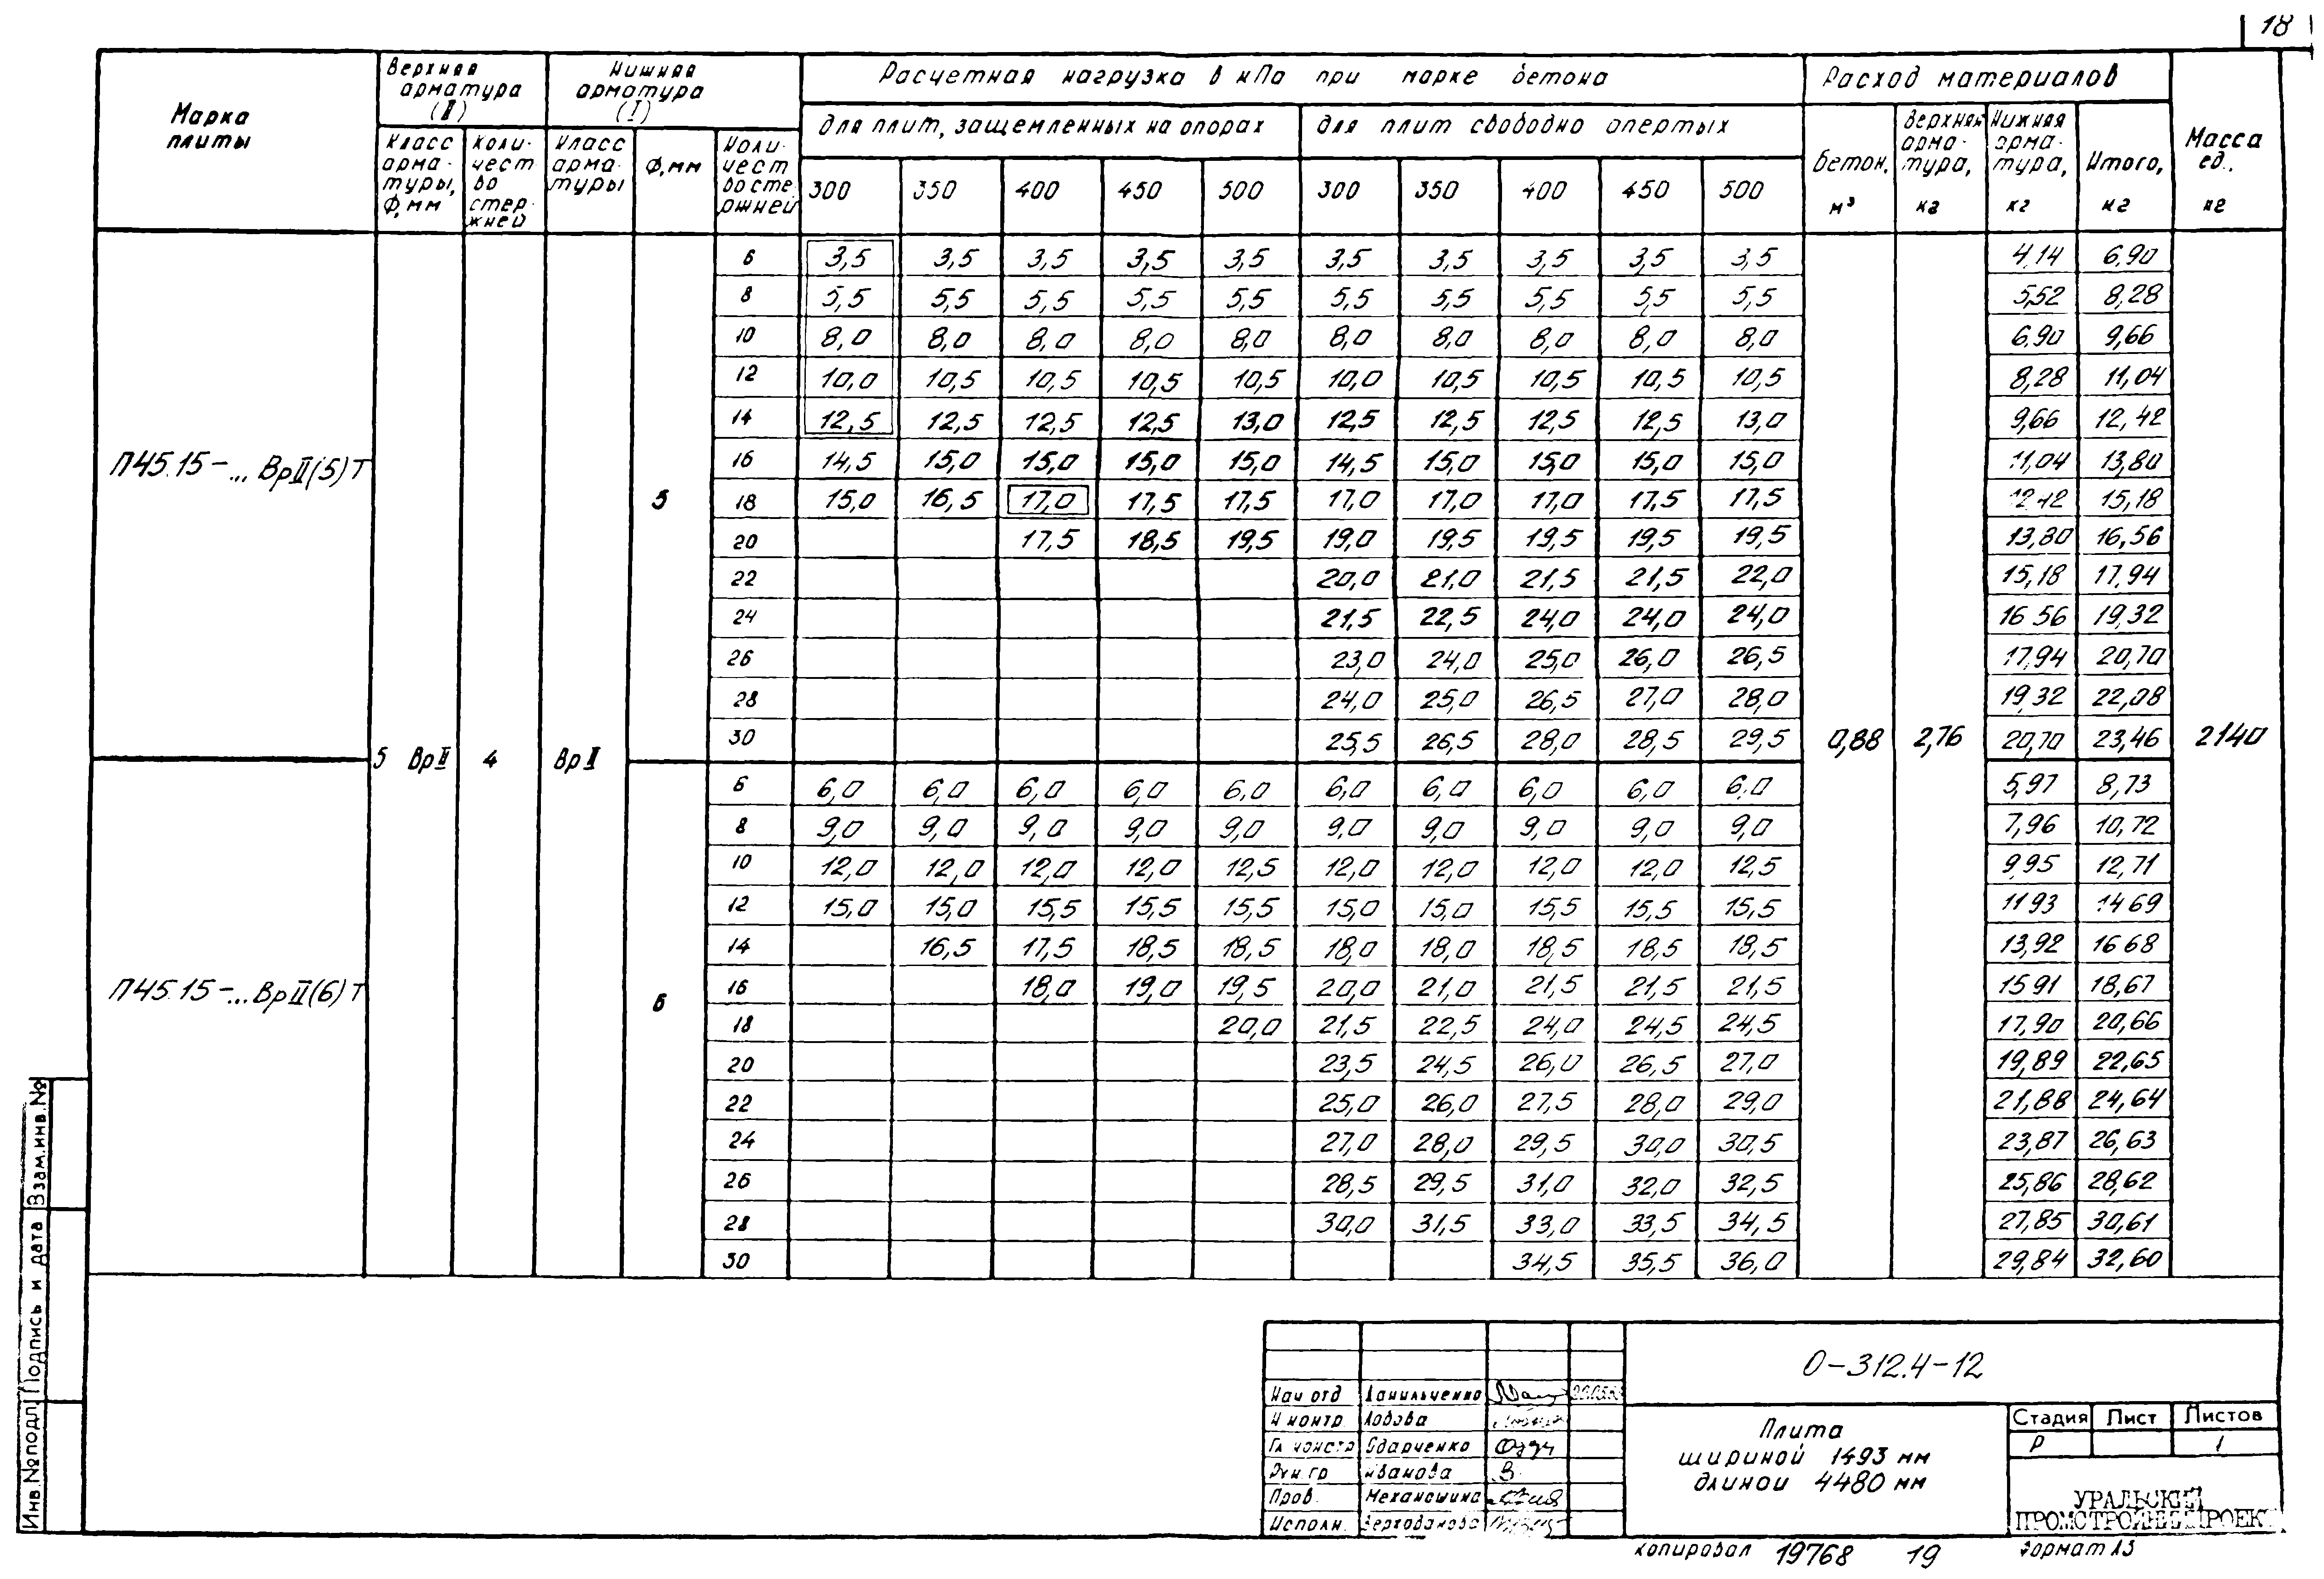 18
Марка плиты
Верхняя арматура (II)
Нижняя арматура (I)
Расчетная нагрузка в кПа при марке бетона
Расход материалов
Масса ед., кг
для плит, защемленных на опорах
для плит свободно опертых
Класс арма-туры, Ф, мм
Коли-чест во стер-жней
Класс арма-туры
Ф, мм
Коли-чест во сте-ржней
300 350 400 450 500 300 350 400 450 500
Бетон, м³
Верхняя арма-тура, кг
Нижняя арма-тура, кг
Итого, кг
П45.15-...ВрII(5)Т
5 ВрII 4 ВрI 5
6 3,5 3,5 3,5 3,5 3,5 3,5 3,5 3,5 3,5 3,5 4,14 6,90
8 5,5 5,5 5,5 5,5 5,5 5,5 5,5 5,5 5,5 5,5 5,52 8,28
10 8,0 8,0 8,0 8,0 8,0 8,0 8,0 8,0 8,0 8,0 6,90 9,66
12 10,0 10,5 10,5 10,5 10,5 10,0 10,5 10,5 10,5 10,5 8,28 11,04
14 12,5 12,5 12,5 12,5 13,0 12,5 12,5 12,5 12,5 13,0 9,66 12,42
16 14,5 15,0 15,0 15,0 15,0 14,5 15,0 15,0 15,0 15,0 11,04 13,80
18 15,0 16,5 17,0 17,5 17,5 17,0 17,0 17,0 17,5 17,5 12,42 15,18
20 17,5 18,5 19,5 19,0 19,5 19,5 19,5 19,5 13,80 16,56
22 20,0 21,0 21,5 21,5 22,0 15,18 17,94
24 21,5 22,5 24,0 24,0 24,0 16 56 19,32
26 23,0 24,0 25,0 26,0 26,5 17,94 20,70
28 24,0 25,0 26,5 27,0 28,0 19,32 22,08
30 25,5 26,5 28,0 28,5 29,5 0,88 2,76 20,70 23,46 2140
П45.15-...ВрII(6)Т
6
6 6,0 6,0 6,0 6,0 6,0 6,0 6,0 6,0 6,0 6,0 5,97 8,73
8 9,0 9,0 9,0 9,0 9,0 9,0 9,0 9,0 9,0 9,0 7,96 10,72
10 12,0 12,0 12,0 12,0 12,5 12,0 12,0 12,0 12,0 12,5 9,95 12,71
12 15,0 15,0 15,5 15,5 15,5 15,0 15,0 15,5 15,5 15,5 11 93 14 69
14 16,5 17,5 18,5 18,5 18,0 18,0 18,5 18,5 18,5 13,92 16 68
16 18,0 19,0 19,5 20,0 21,0 21,5 21,5 21,5 15 91 18,67
18 20,0 21,5 22,5 24,0 24,5 24,5 17,90 20,66
20 23,5 24,5 26,0 26,5 27,0 19,89 22,65
22 25,0 26,0 27,5 28,0 29,0 21,88 24,64
24 27,0 28,0 29,5 30,0 30,5 23,87 26,63
26 28,5 29,5 31,0 32,0 32,5 25,86 28,62
28 30,0 31,5 33,0 33,5 34,5 27,85 30,61
30 34,5 35,5 36,0 29,84 32,60
Инв.№подл. Подпись и дата Взам.инв.№
О-312.4-12
Нач отд Данильченко
Н контр Лобова
Гл констр Сдарченко
Рук.гр Иванова
Пров. Механошина
Исполн.
Плита
шириной 1493 мм
длиной 4480 мм
Стадия Лист Листов
Р 1
УРАЛЬСКИЙ
ПРОМСТРОЙНИИПРОЕКТ
копировал 19768 19 формат А3